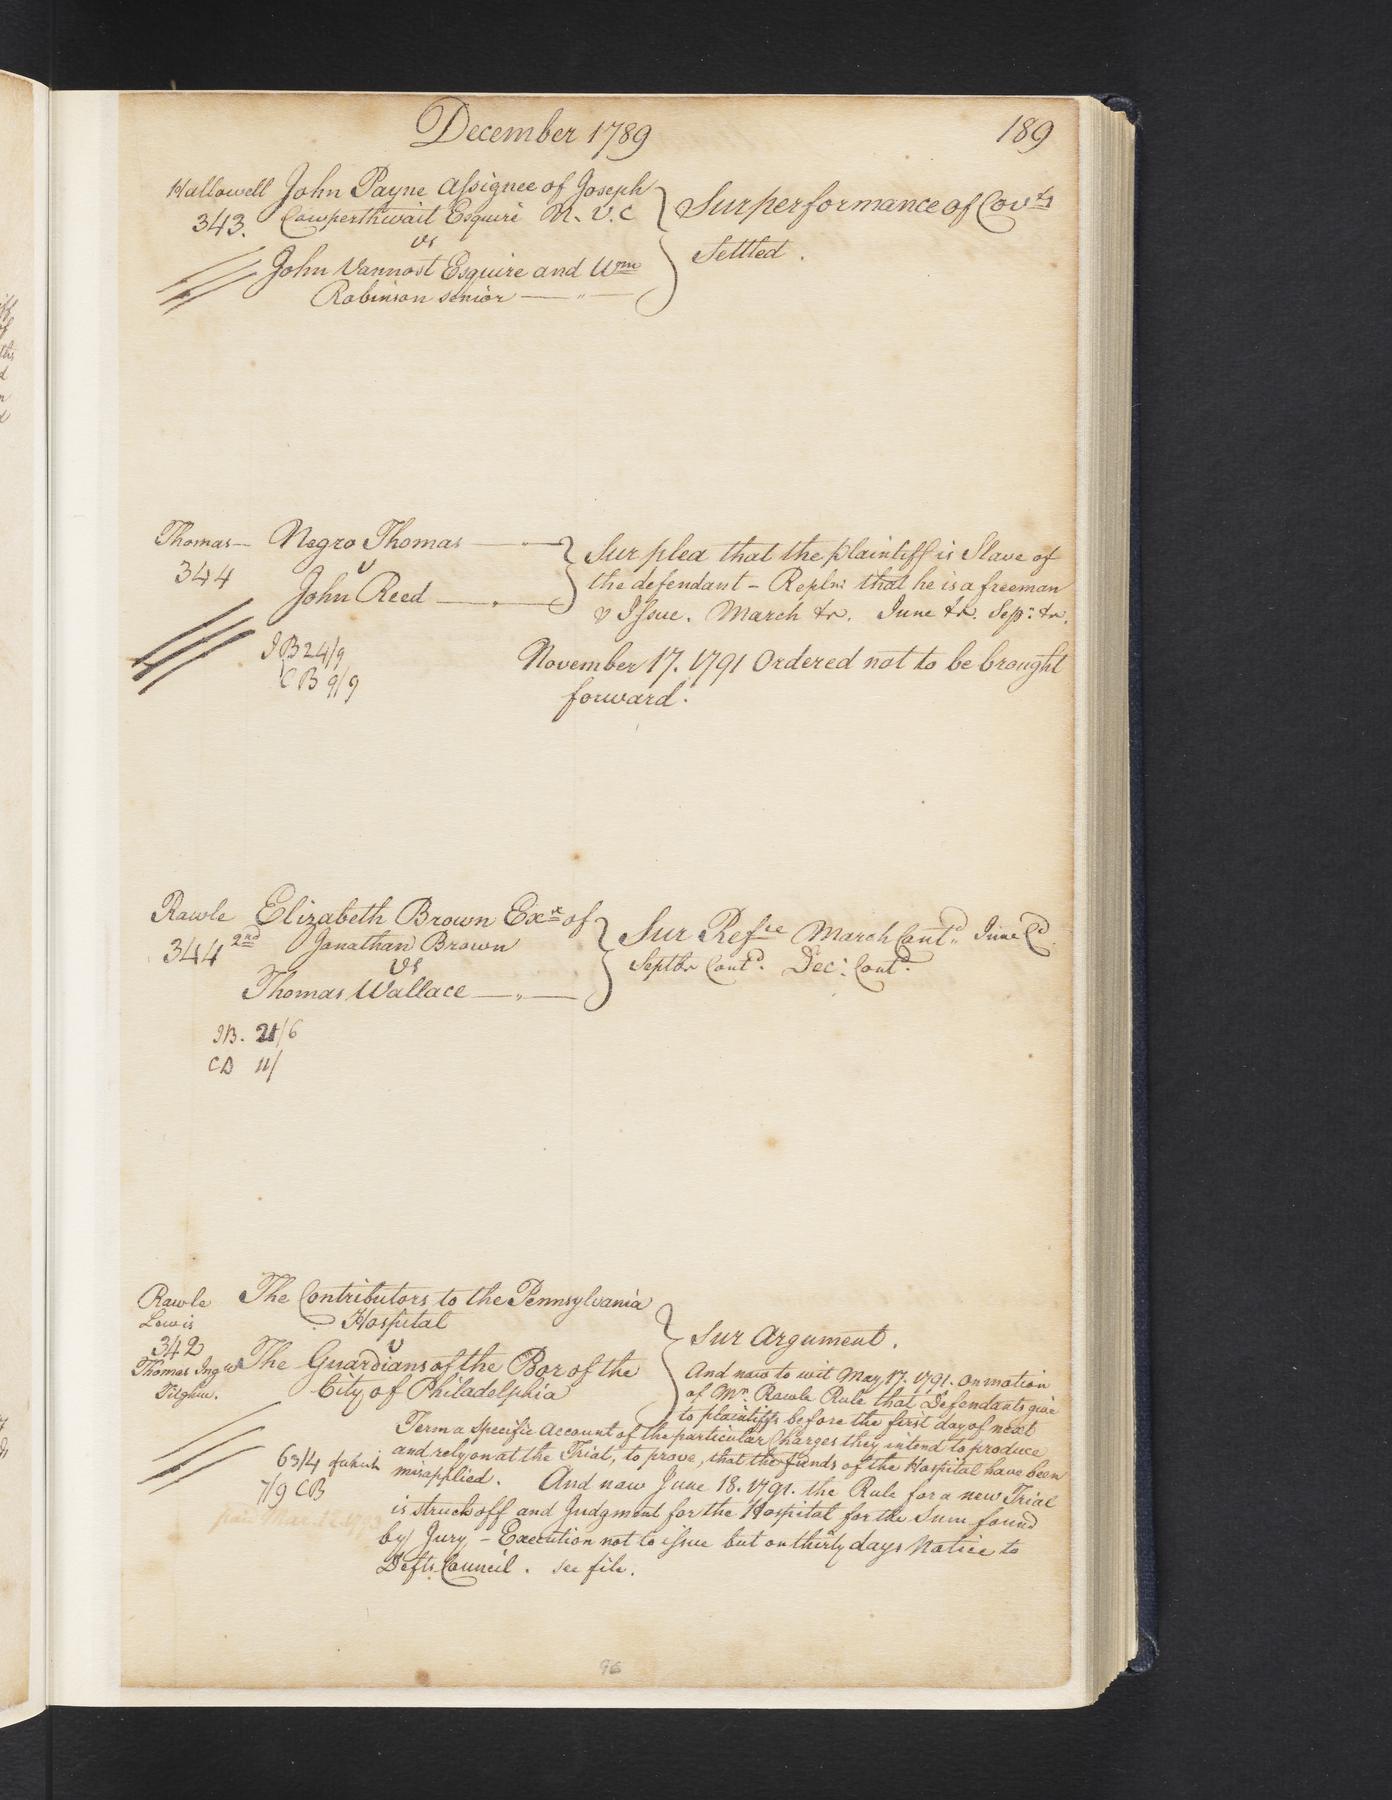 December 1789
189
Hallowell John Payne Assignee of Joseph
343. Cowperthwait Esquire M. V. C
vs
John Vannost Esquire and Wm
Robinson senior
Sur performance of Covts
Settled.
Thomas Negro Thomas
344 v
John Reed
J B 24/9
C B 9/9
Sur plea that the plaintiff is Slave of
the defendant - Repln: that he is a freeman
& Issue. March tr. June tr. Sep: tr.
November 17. 1791 Ordered not to be brought
forward.
Rawle Elizabeth Brown Exx of
344 2nd Jonathan Brown
vs
Thomas Wallace
Sur Refce March Contd. June Cd
Septbr Contd. Dec: Contd.
JB. 21/6
CB 11/
Rawle The Contributors to the Pennsylvania
Lewis Hospital
342 v
Thomas Ing The Guardians of the Poor of the
Tilghm. City of Philadelphia
Sur Argument.
And now to wit May 17. 1791. on motion
of Mr. Rawle Rule that Defendants give
to plaintiffs before the first day of next
Term a specific account of the particular Charges they intend to produce
and rely on at the Trial, to prove, that the funds of the Hospital have been
63/4
misapplied. And now June 18. 1791. the Rule for a new Trial
7/9 CB
is struck off and Judgment for the Hospital for the Sum found
paid Mar.
by Jury - Execution not to issue but on thirty days Notice to
Defts Council. see file.
96